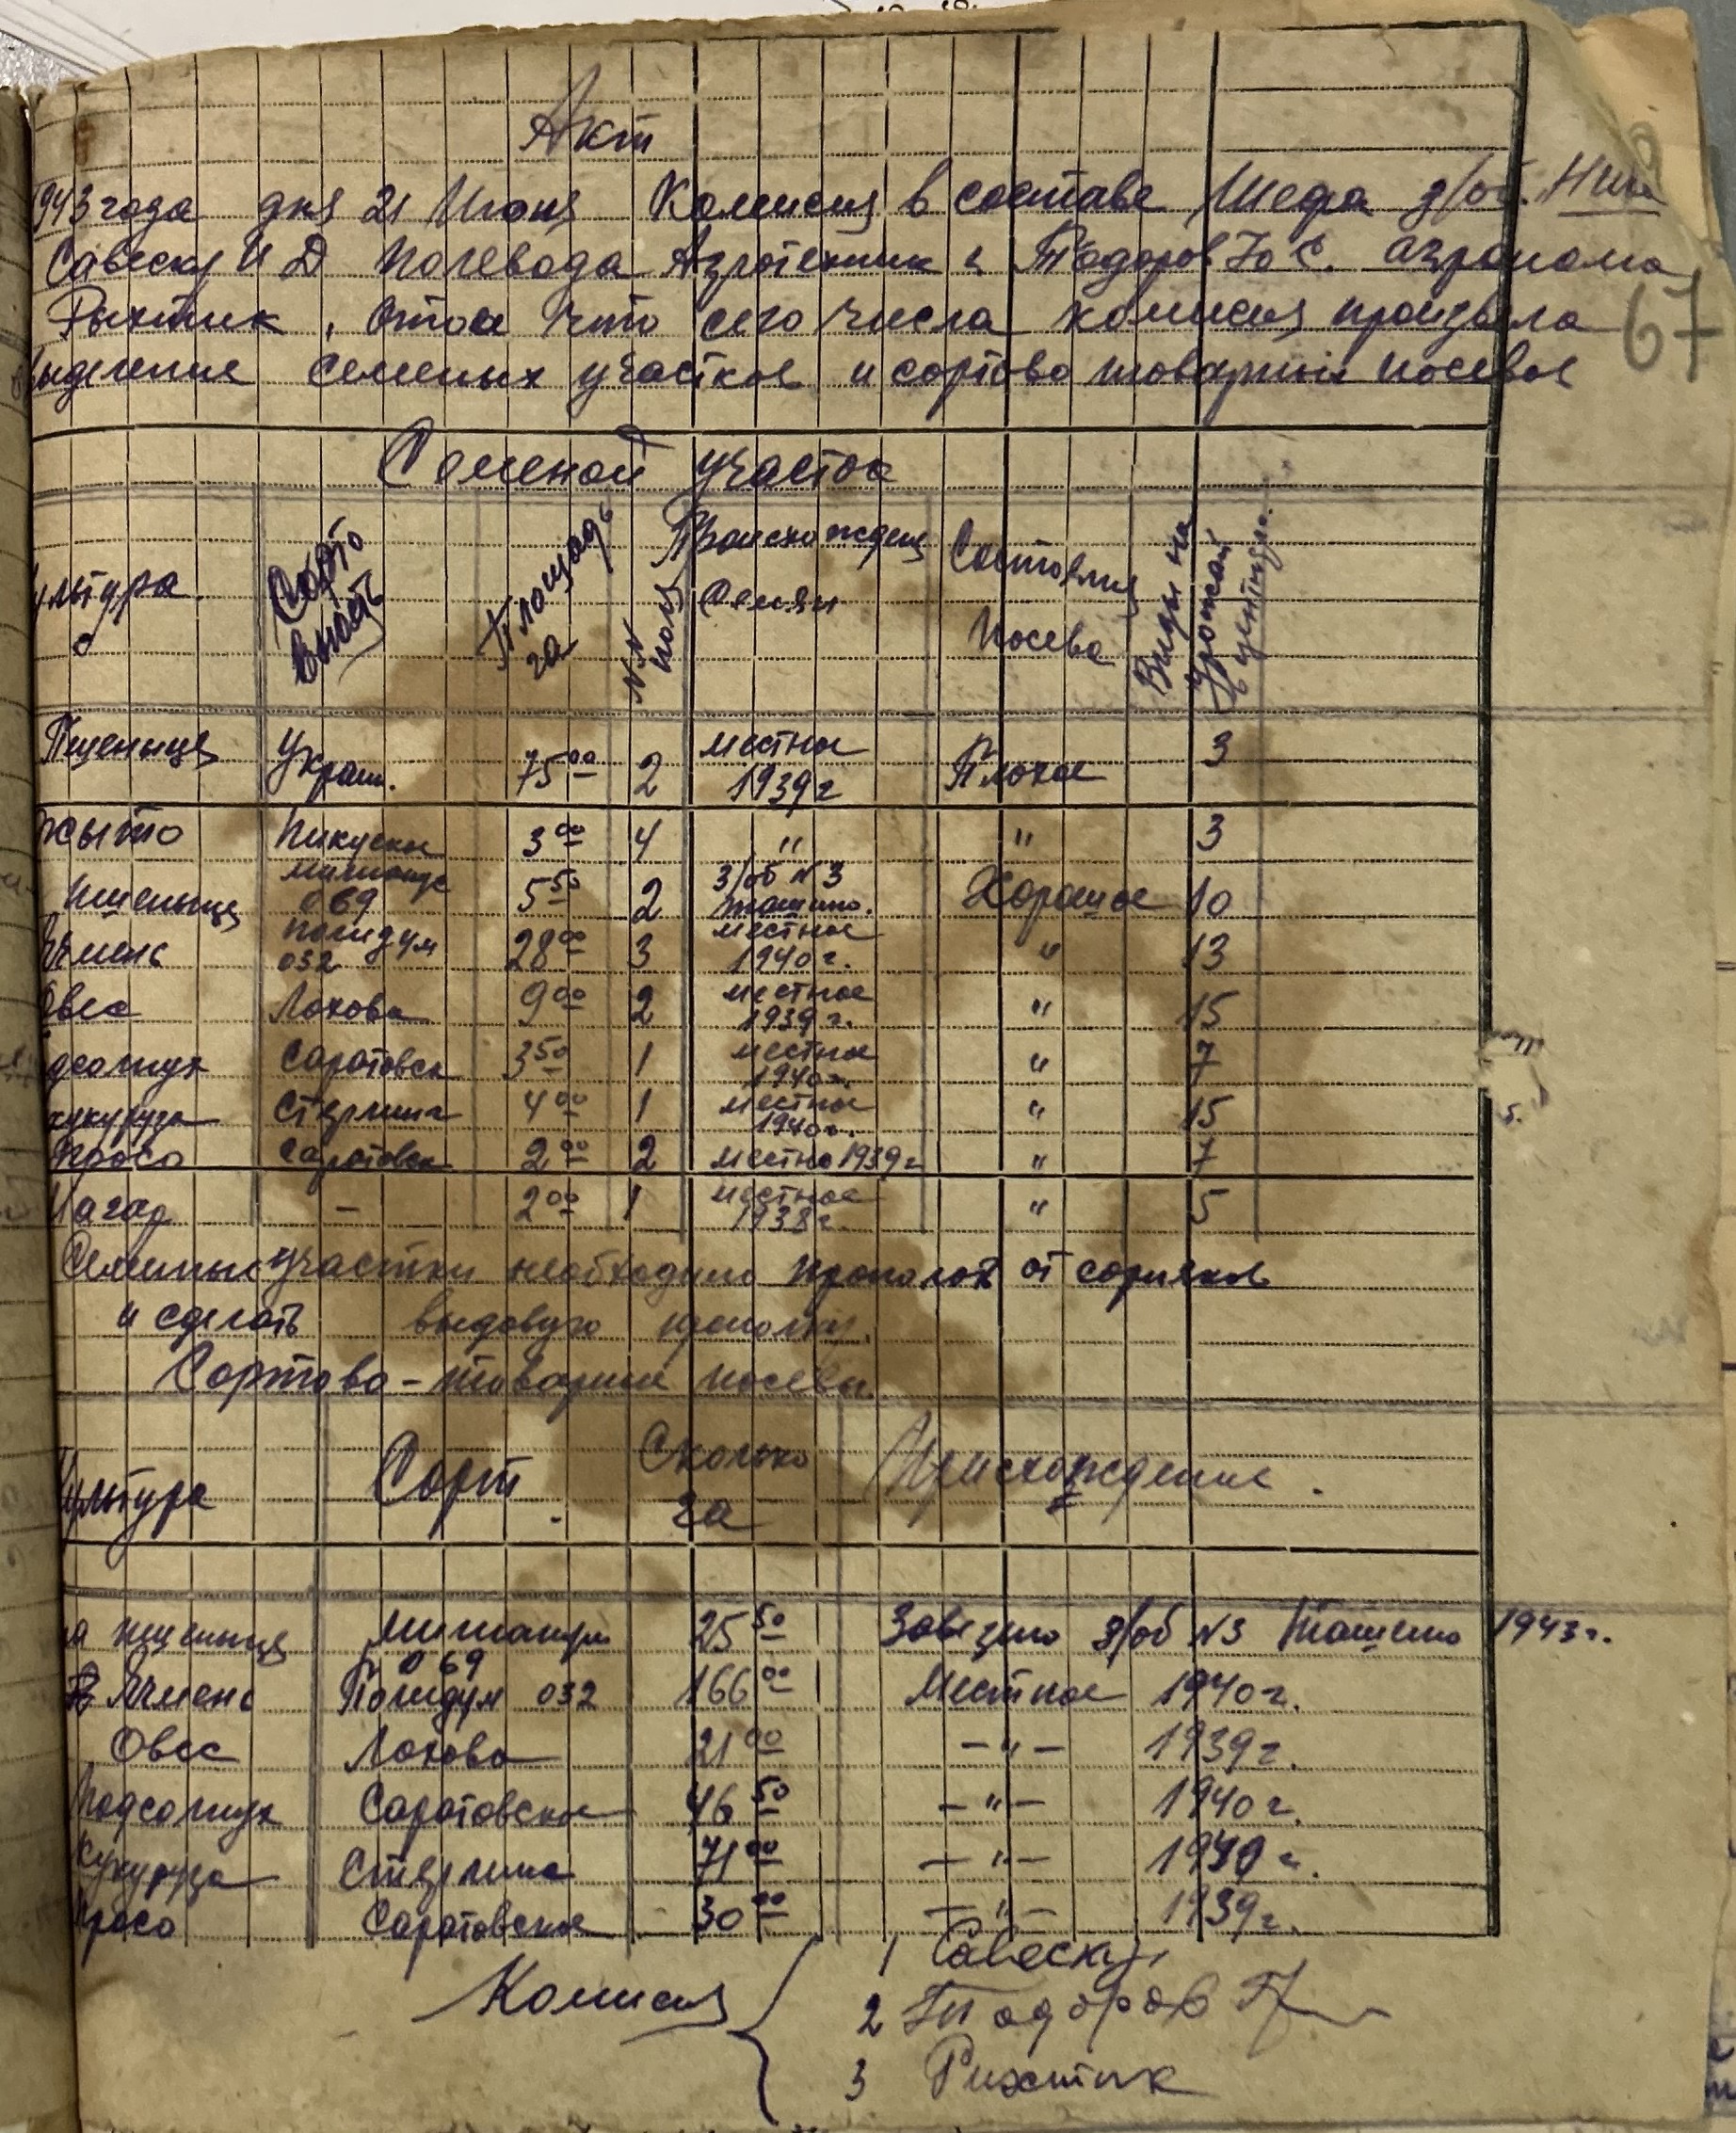 Акт
1943 года дня 21 Июня Комисия в составе Шефа з/об. Нши
Савеску И Д Полевода Агротехник и Тодоров Ю С. агронома
Рыхтик, что сего числа комисия произвела
выделение семеных участков и сортово товарных посевов
67
Семеной участок
Культура
Сорто вность
Площадь га
NN поля
Происхожден Семян
Состояния Посева
Виды на Урожай в центнер.
Пшеныця Украин. 75 00 2 местное 1939 г Плохое 3
жыто Пикуское 3 00 4 " " 3
Пшеныця 069 5 50 2 З/об N 3 Хорошое 10
Ячмень 032 28 00 3 местное 1940 г. " 13
Овес Лохова 9 00 2 местное 1939 г. " 15
Подсолнух Саратовск 3 50 1 местное 1940 г. " 7
кукуруза Стерлинг 4 00 1 местное 1940 г. " 15
Просо Саратовск 2 00 2 местно 1939 г " 7
- 2 00 1 местное 1938 г. " 5
Семеные участки необходимо прополоть от сорняков
и сделать видовую прополку.
Сортово-товарные посевы.
Культура Сорт. Сколько га Происхождение.
пшеныця 069 25 50 Завезено з/об N3 1943 г.
Ячмень 032 166 00 Местное 1940 г.
Овес Лохова 21 00 -"- 1939 г.
Подсолнух Саратовское 46 50 -"- 1940 г.
Кукуруза Стерлинг 71 00 -"- 1940 г.
Просо Саратовское 30 00 -"- 1939 г.
Комисия
1 Савеску
2 Тодоров
3 Рихтик